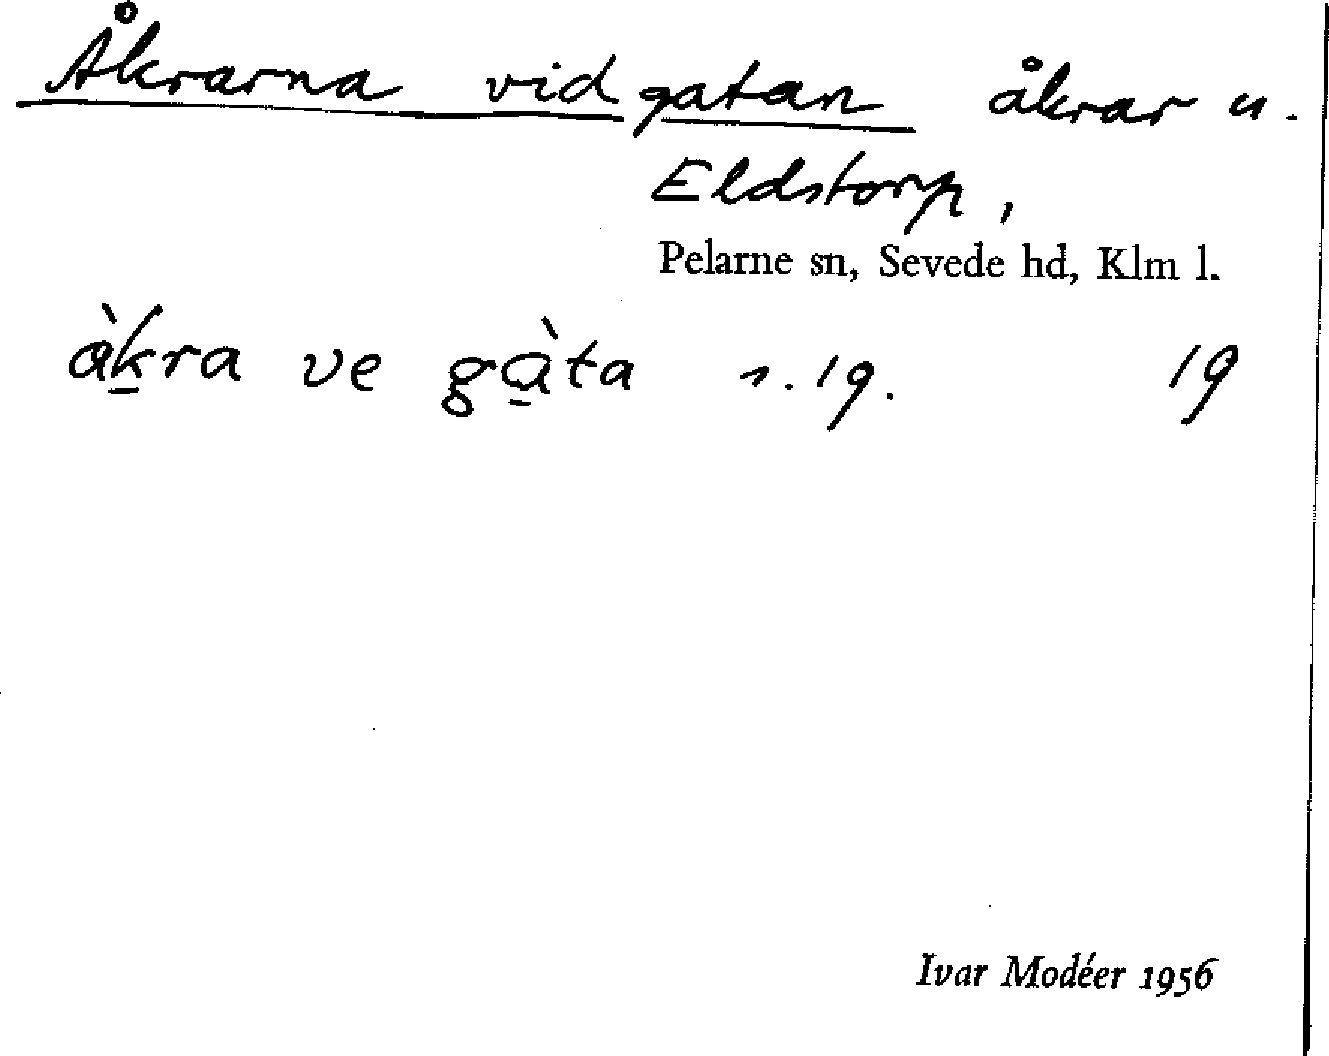 Åkrarna vid gatan åkrar u.
Eldstorp,
Pelarne sn, Sevede hd, Klm l.
àk̠ra ve gà̠ta s. 19. 19
Ivar Modéer 1956